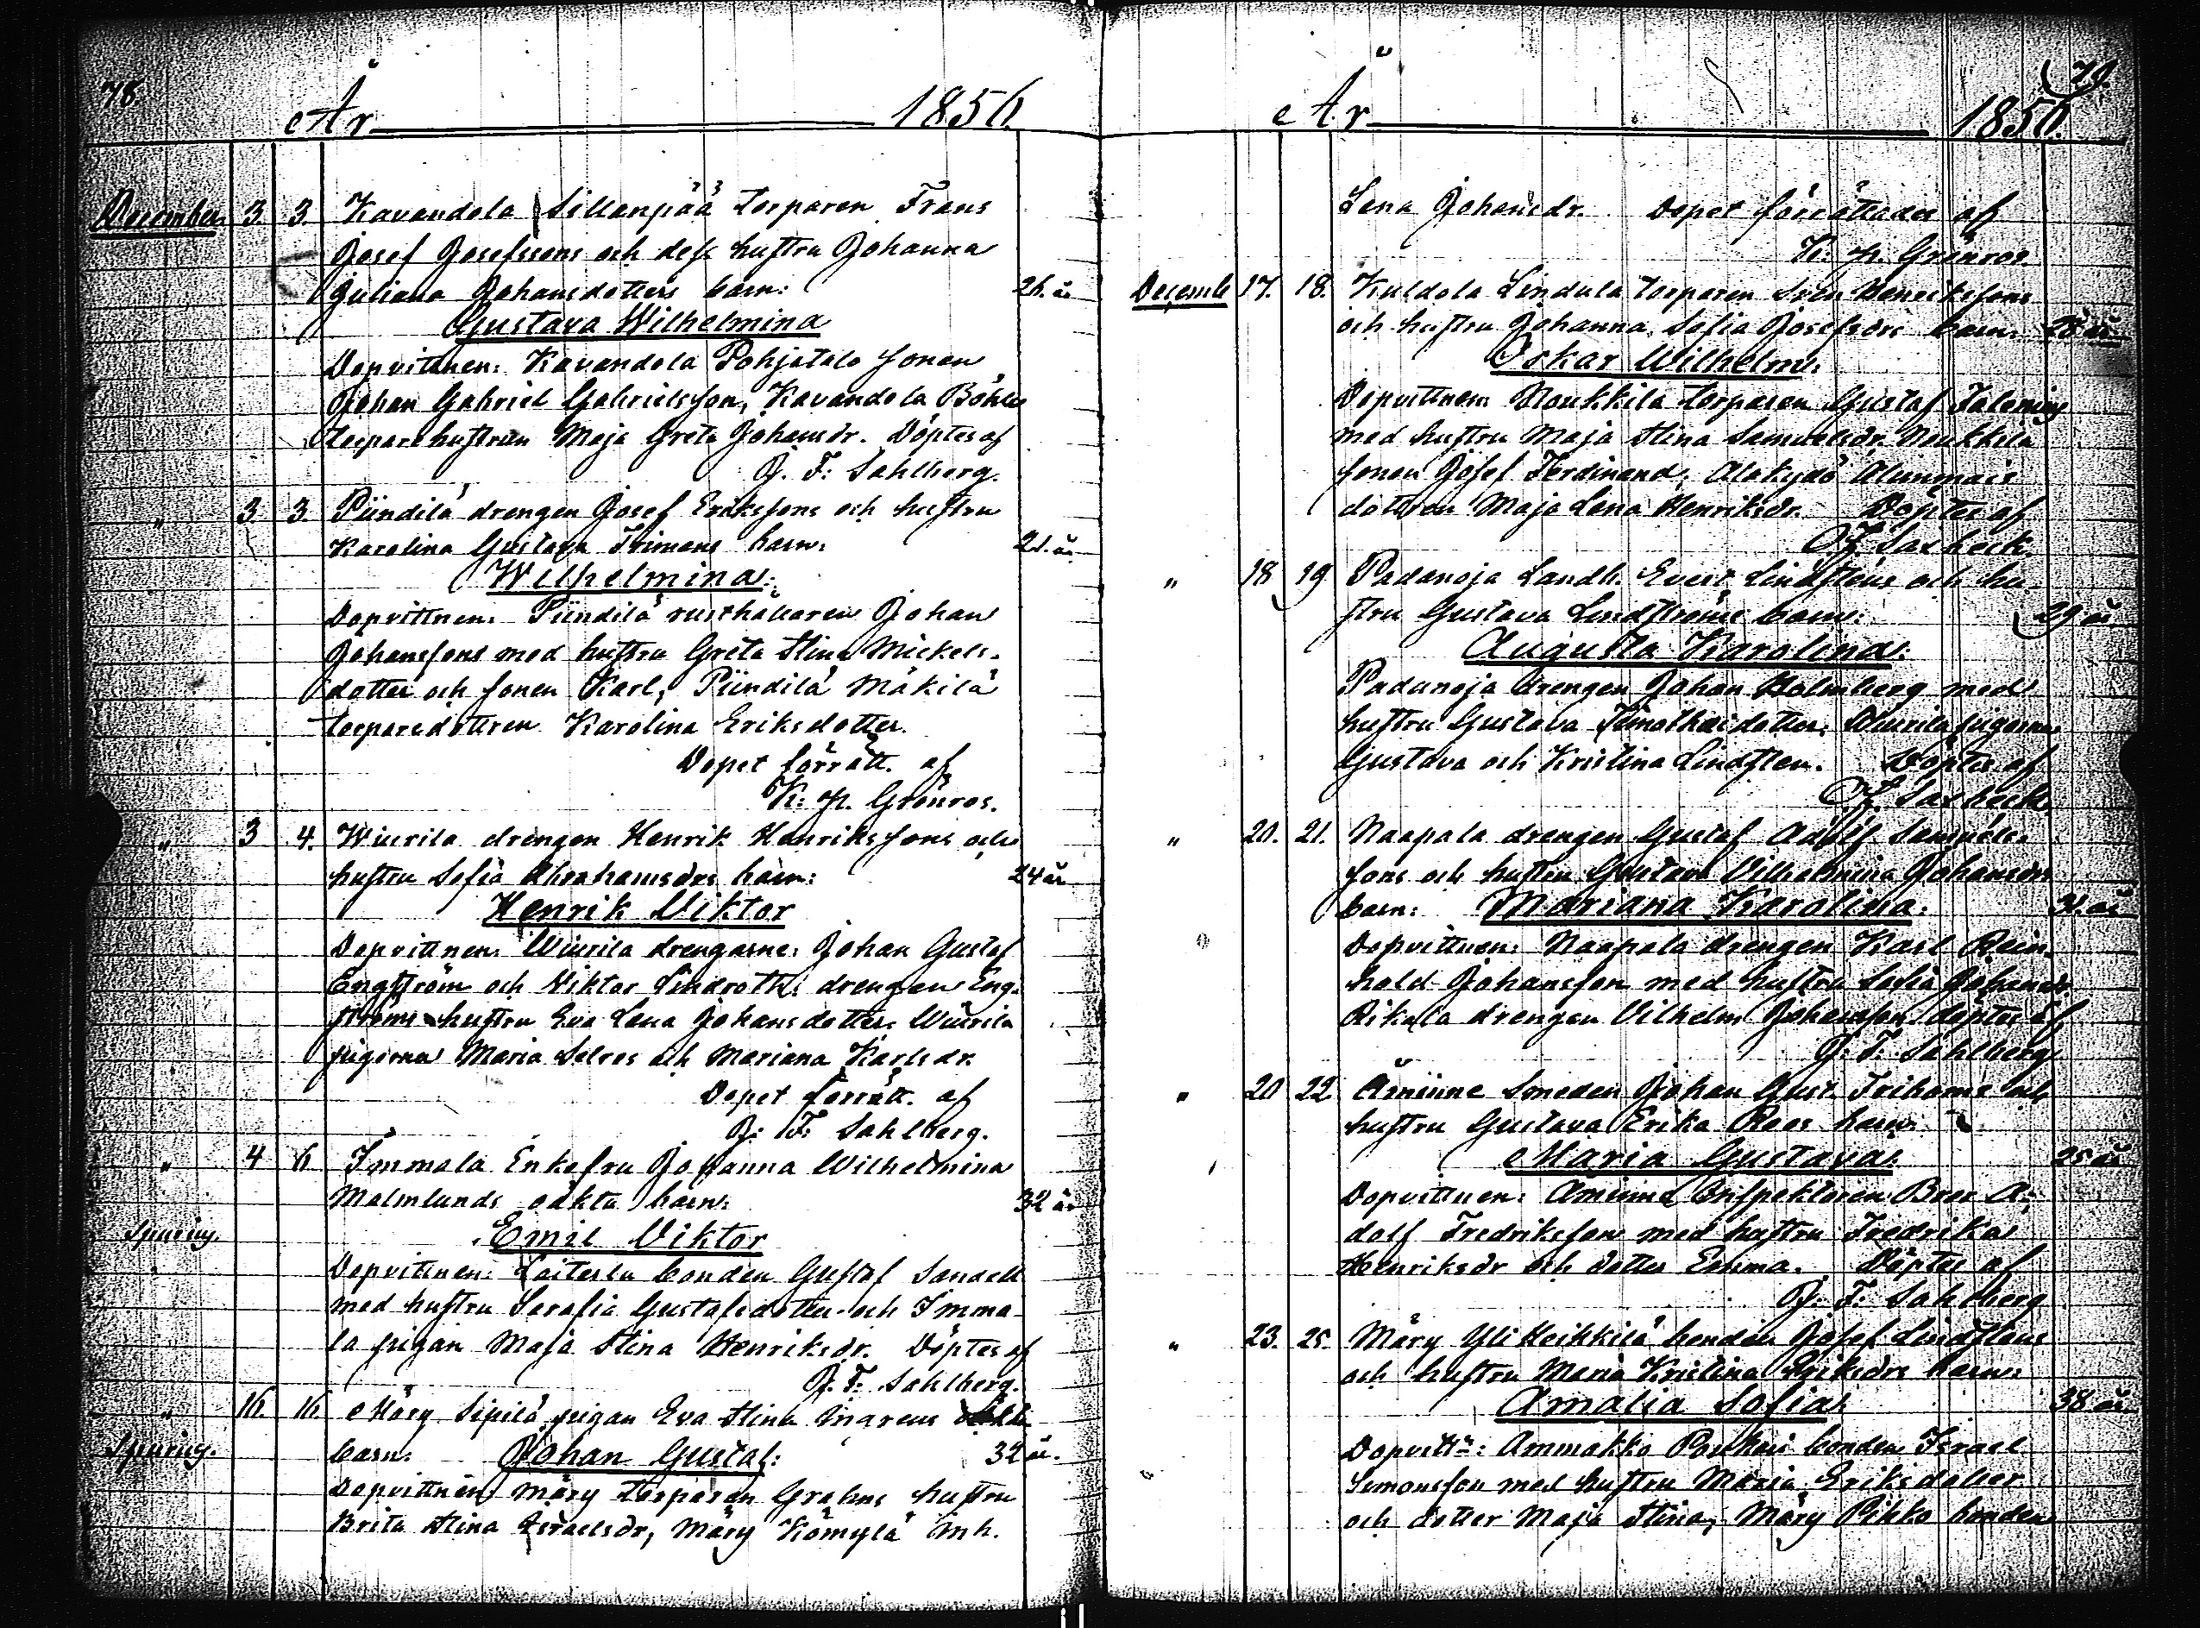 78.
År 1856.
December. 3. 3. Kavandola Sillanpää torparen Frans
Josef Josefssons och dess hustru Johanna
Juliana Johansdotters barn: 26. år
Gustava Wilhelmina
Dopvittnen: Kavandola Pohjatalo sonen
Johan Gabriel Gabrielsson, Kavandola Böhle
torparehustrun Maja Greta Johansdr. Döptes af
J. F: Sahlberg.
" 3 3 Piindilä drengen Josef Erikssons och hustru
Karolina Gustava Frimans barn: 21. år
Wilhelmina:
Dopvittnen: Piindilä rusthållaren Johan
Johanssons med hustru Greta Stina Mickels-
dotter och sonen Karl, Piindilä Mäkilä
torparedottren Karolina Eriksdotter.
Dopet förrätt. af
K: p. Grönros.
" 3 4. Wiurila drengen Henrik Henrikssons och
hustru Sofia Abrahamsdrs barn: 24 år
Henrik Viktor
Dopvittnen: Wiurila drengarne: Johan Gustaf
Engström och Viktor Lindroth: drengen Eng-
ströms hustru Eva Lena Johansdotter. Wiurila
pigorna Maria Selros och Mariana Karlsdr.
Dopet förrätt. af
J: F: Sahlberg.
" 4 6 Immala Enkefru Johanna Wilhelmina
Malmlunds oäkta barn: 32 år
Spuriuy. Emil Viktor
Dopvittnen: Laiterla bonden Gustaf Sandell
med hustru Serafia Gustafsdotter och Imma-
la pigan Maja Stina Henriksdr. Döptes af
J. F: Sahlberg.
" 16. 16. Märy Sipilä pigan Eva Stina Ingrens
Spuriuy. barn: Johan Gustaf: 32 år.
Dopvittnen: Märy torparen Grahns hustru
Brita Stina Israelsdr, Märy Kömylä Inh.
79.
År 1856.
Lena Johansdr. Dopet förrättades af
K: p. Grönros.
Decemb 17. 18. Kuldola Lindula torparen Sven Henrikssons
och hustru Johanna Sofia Josefsdrs barn: 28 år
Oskar Wilhelm:
Dopvittnen: Noukkila torparen Gustaf Salening
med hustru Maja Stina Samuelsdr. Noukkila
sonen Josef Ferdinand, Alakydö
dottren Maja Lena Henriksdr. Döptes af
Saxbeck.
" 18 19 Padanoja Landb. Evert Lindstens och hu-
stru Gustava Lindströms barn: 29 år
Augusta Karolina:
Padanoja drengen Johan Holmberg med
hustru Gustava Timotheidotter, Wiurila pigorna
Gustava och Kristina Lindsten. Döptes af
Saxbeck.
" 20. 21. Naapala drengen Gustaf Adolf Samuels-
sons och hustru Gustava Vilhelmina Johansdrs
barn: Mariana Karolina: 31. år
Dopvittnen: Naapala drengen Karl Rein-
hold Johansson med hustru Sofia Johansdr
Rikala drengen Vilhelm Johansson döptes af
J. F: Sahlberg
" 20 22 Åminne Smeden Johan Gust. Frihoms och
hustru Gustava Erika Roos barn:
Maria Gustava: 25 år
Dopvittnen: Åminne Inspektoren Bror A-
dolf Fredriksson med hustru Fredrika
Henriksdr och dotter Emma. Döptes af
J: F: Sahlberg
" 23. 25. Märy Yli Heikkilä bonden Josef Lindstens
och hustru Maria Kristina Eriksdrs barn:
Amalia Sofia: 38 år.
Dopvittn: Ammakko Paukari bonden Israel
Simonsson med hustru Maria Eriksdotter
och dotter Maja Stina, Märy Pihko bonden